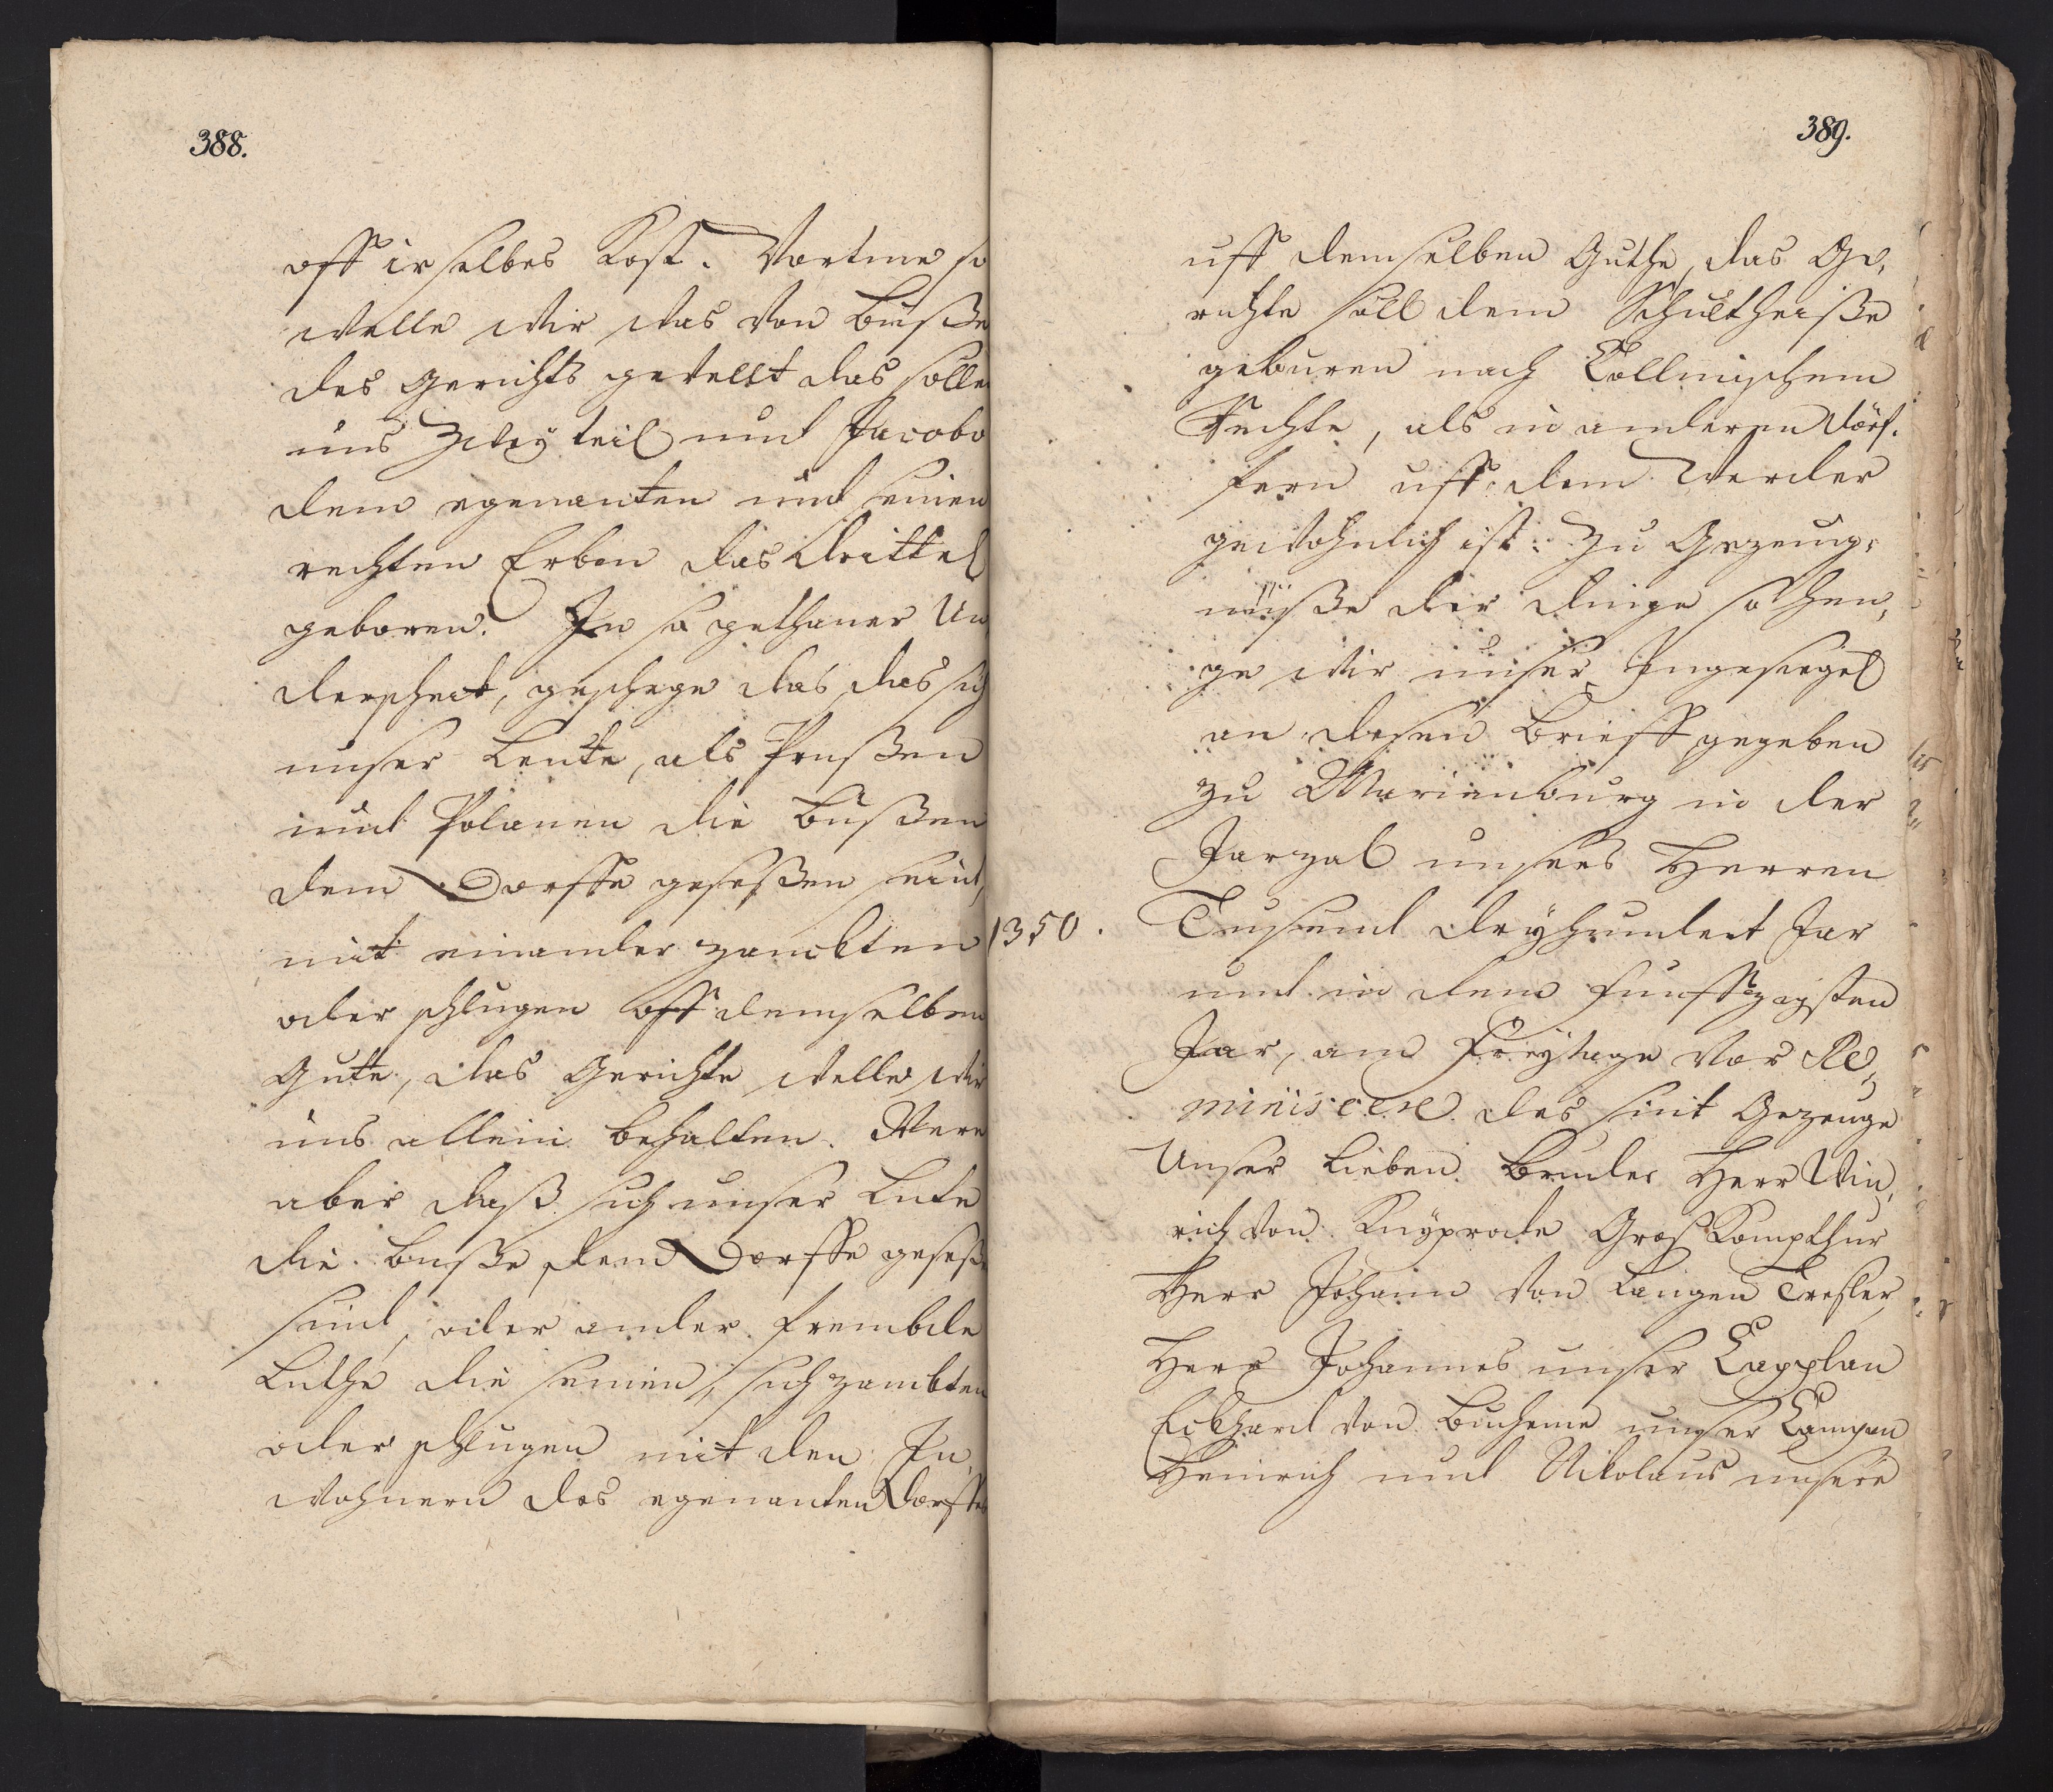 388.
off ir selbes Kost. Vortme so
welle wir was von buße
des Gerichts gevellt das solle
uns zwey teil und Jacobo
dem egenanten und seinen
rechten Erben das drittel
geboren. In so gethaner Un
derscheit, geschege das das sich
unser Leute, als Prußen
und Polanen die bußen
dem Dorffe geseßen seint,
mit einander zanckten
oder schlugen off demselben
Gute, das Gerichte welle wir
uns allein behalten. Were
aber daß sich unser Lute
die buße dem Dorffe geseße
sind, oder ander frembde
Luthe die seinen, sich zanckten
oder schlugen mit den In,
wohnern des egenanten Dorffes
389.
uff demselben Guthe, das Ge,
richte soll dem Schultheiße
geburen nach Collmischem
Rechte, als in anderen Dörf.
fern uff dem Werder
gewohnlich ist: Zu Gezeug,
nüße der Dinge so hen,
ge wir unser Ingesiegel
an desen Brieff gegeben
zu Marienburg in der
Jarzal unsers Herren
1350. Tusend dryhundert Jar
und in dem funffzigsten
Jar, am Freytage vor Re,
miniscere des sint Gezeuge
Unser Lieben Bruder Herr Win,
rich von Knyprode Groß Kompthur
Herr Johann von Langen Tresler,
Herr Johannes unser Capplan
Eckhard von Bucheme unser Compan
Heinrich und Nikolaus unsere